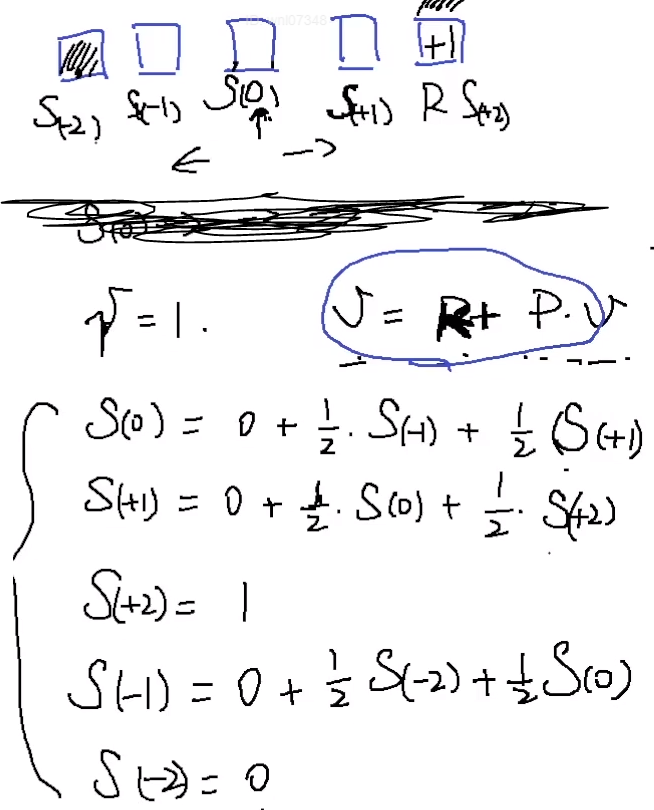 +1
S(-2) S(-1) S(0) S(+1) R S(+2)
← →
γ = 1. V = R + P·V
S(0) = 0 + 1/2 · S(-1) + 1/2 (S(+1)
S(+1) = 0 + 1/2 · S(0) + 1/2 · S(+2)
S(+2) = 1
S(-1) = 0 + 1/2 S(-2) + 1/2 S(0)
S(-2) = 0